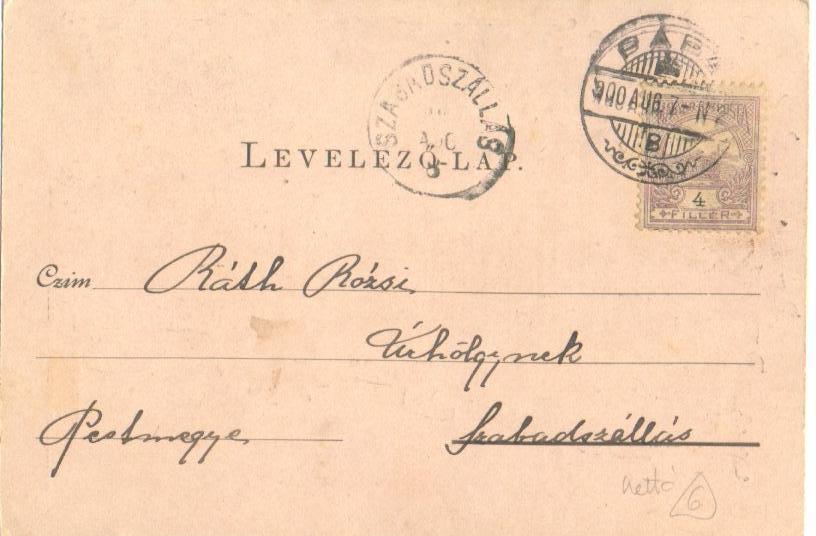 PÁP
900 AUG. 7 - N 7
B
SZABADSZÁLLÁS
AUG
8
LEVELEZŐ-LAP.
4
FILLÉR
Czim Ráth Rózsi
Úrhölgynek
Pestmegye Szabadszállás
nettó 6